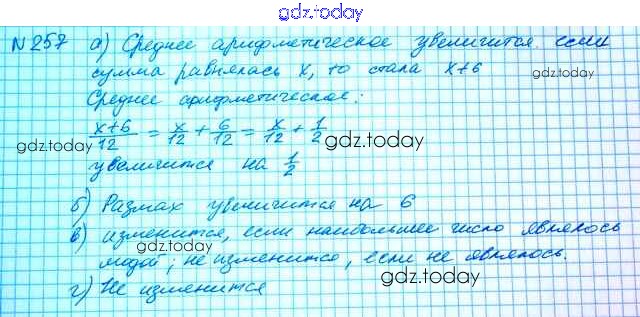 gdz.today
N257 а) Среднее арифметическое увеличится если
сумма равнялась x, то стала x+6
gdz.today
Среднее арифметическое:
(x+6)/12 = x/12 + 6/12 = x/12 + 1/2
gdz.today
gdz.today
увеличится на 1/2
б) Размах увеличится на 6
в) изменится, если наибольшее число являлось
gdz.today
модой; не изменится, если не являлось.
gdz.today
г) Не изменится